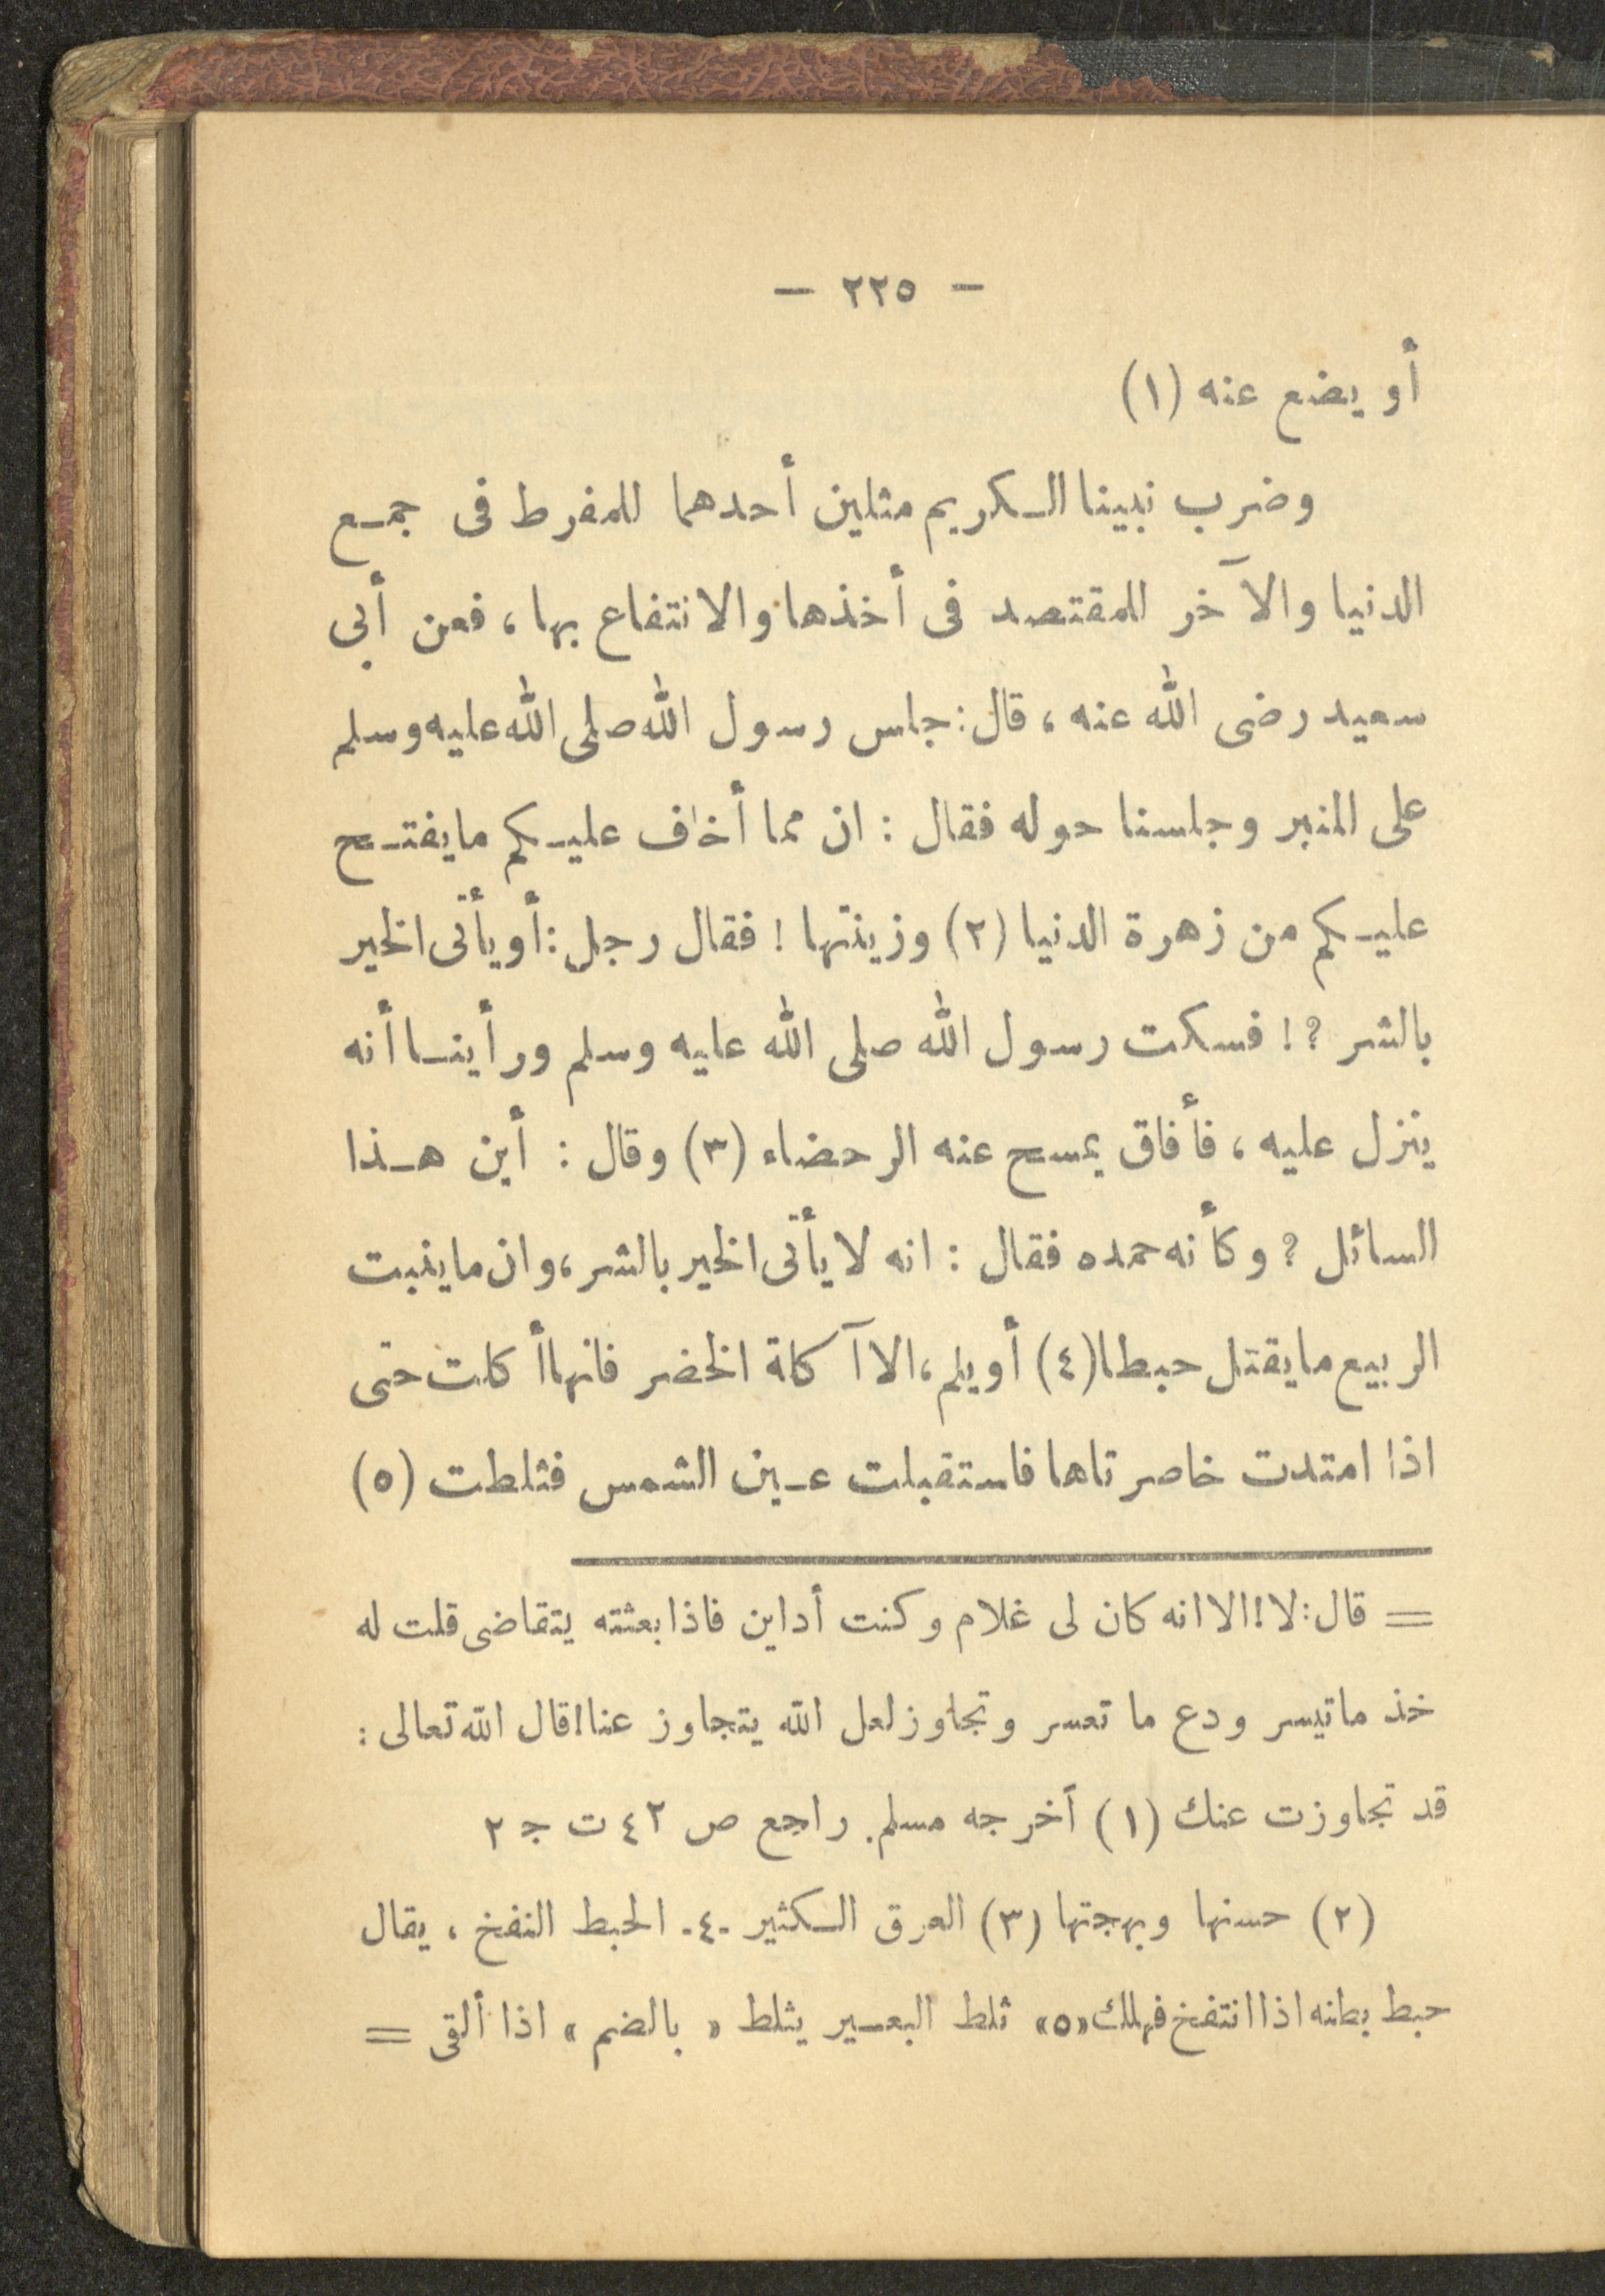 — ٢٢٥ —
أو يضع عنه (١)
وضرب نبينا الكريم مثلين أحدهما للمفرط فى جمع
الدنيا والآخر للمقتصد فى أخذها والانتفاع بها ، فعن أبى
سعيد رضى الله عنه ، قال : جلس رسول الله صلى الله عليه وسلم
على المنبر وجلسنا حوله فقال : ان مما أخاف عليكم ما يفتح
عليكم من زهرة الدنيا (٢) وزينتها ! فقال رجل : أو يأتى الخير
بالشر ؟ ! فسكت رسول الله صلى الله عليه وسلم ورأينا أنه
ينزل عليه ، فأفاق يمسح عنه الرحضاء (٣) وقال : أين هذا
السائل ؟ وكأنه حمده فقال : انه لا يأتى الخير بالشر ، وان ما ينبت
الربيع ما يقتل حبطا (٤) أو يلم ، الا آكلة الخضر فانها أكلت حتى
اذا امتدت خاصرتاها فاستقبلت عين الشمس فثلطت (٥)
= قال : لا ! الا انه كان لى غلام وكنت أداين فاذا بعثته يتقاضى قلت له
خذ ما تيسر ودع ما تعسر وتجاوز لعل الله يتجاوز عنا ! قال الله تعالى :
قد تجاوزت عنك (١) أخرجه مسلم . راجع ص ٤٢ ت ج ٢
(٢) حسنها وبهجتها (٣) العرق الكثير -٤- الحبط النفخ ، يقال
حبط بطنه اذا انتفخ فهلك «٥» ثلط البعير يثلط « بالضم » اذا ألقى =